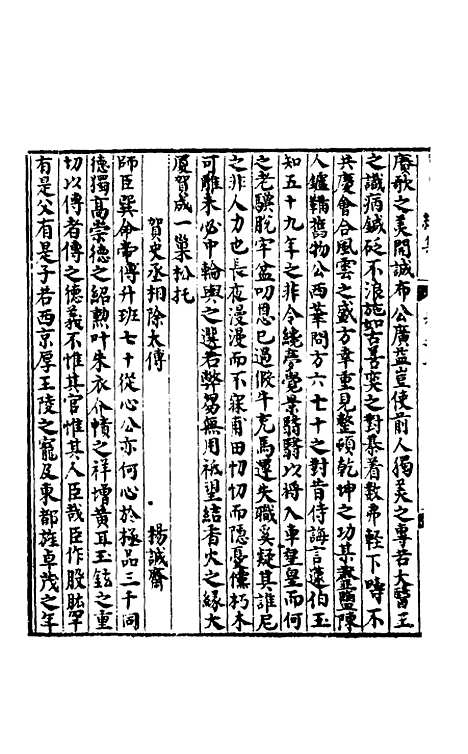 賡歌之美開誠布公廣益豈使前人獨美之專若大醫王
之識病鍼砭不浪施如古善奕之對棊着數弗輕下疇不
共慶會合風雲之盛方幸重見整頓乾坤之功其虀鹽陳
人鑪鞴舊物公西華問方六七十之對昔侍誨言蘧伯玉
知五十九年之非今纔夢覺景翳翳以將入車皇皇而何
之老驥脫牢盆叨恩已過假牛充馬遷失職奚疑其誰尼
之非人力也長夜漫漫而不寐甫田切切而隱憂儻朽木
可雕未必中輪輿之選若弊芻無用祗望結香火之緣大
厦賀成一巢松托
賀史丞相除太傅　楊誠齋
師臣巽命帝傅升班七十從心公亦何心於極品三千同
德獨高崇德之紹勲叶朱衣介幘之祥增黄耳玉鉉之重
切以傅者傅之德義不惟其官惟其人臣哉臣作股肱罕
有是父有是子若西京厚王陵之寵及東都旌卓茂之年